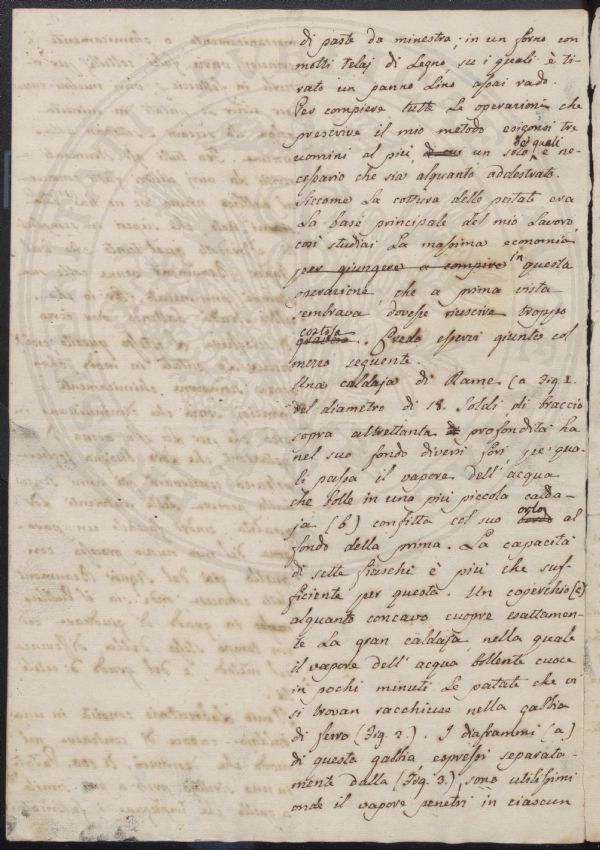 di paste da minestra; in un forno con
molti telaj di Legno, su i quali è ti-
rato un panno Lino assai rado.
Per compiere tutte Le operazioni che
prescrive il mio metodo esigonsi tre
uomini al più, di cui un solo dei quali è ne-
cessario che sia alquanto addestrato.
Siccome La cottura delle patate era
La base principale del mio Lavoro,
così studiai La massima economia
per giungere a compire in questa
operazione, che a prima vista
sembrava dovesse riuscire troppo
costosa. Credo esservi giunto col
mezzo seguente.
Una caldaja di Rame (a Fig. 1.
del diametro di 18. Soldi di braccio
sopra altrettanta di profondità ha
nel suo fondo diversi fori, pe' qua-
li passa il vapore dell' acqua
che bolle in una più piccola calda-
ja (b) confitta col suo orlo al
fondo della prima. La capacità
di sette fiaschi è più che suf-
ficiente per questa. Un coperchio (c)
alquanto concavo cuopre esattamen-
te La gran caldaja, nella quale
il vapore dell' acqua bollente cuoce
in pochi minuti Le patate che vi
si trovan racchiuse nella gabbia
di ferro (Fig. 2.). I diaframmi (a)
di questa gabbia, espressi separata-
mente dalla (Fig. 3.), sono utilissimi
onde il vapore penetri in ciascun